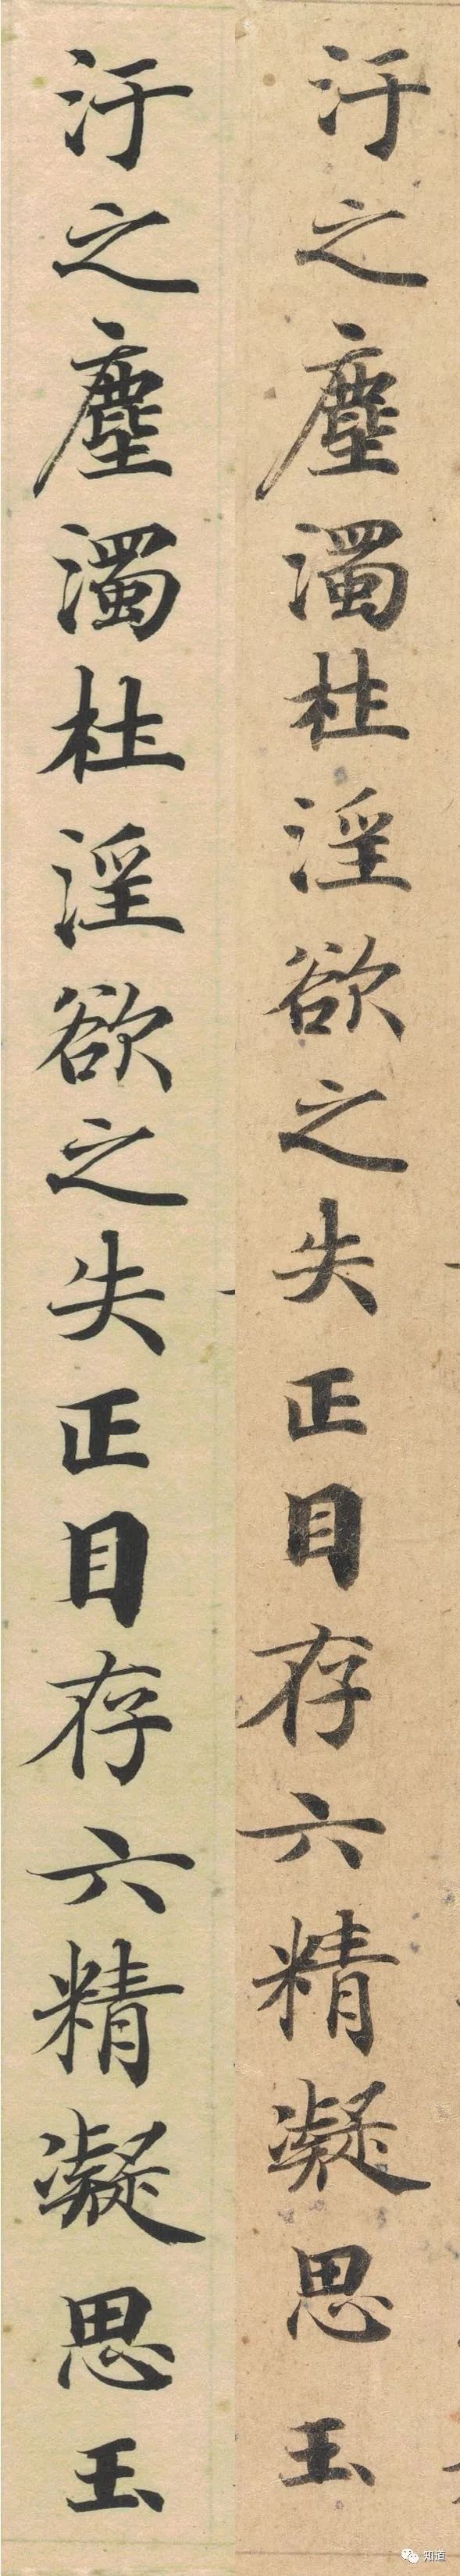 汙之塵濁杜淫欲之失正目存六精凝思玉
汙之塵濁杜淫欲之失正目存六精凝思玉
知道